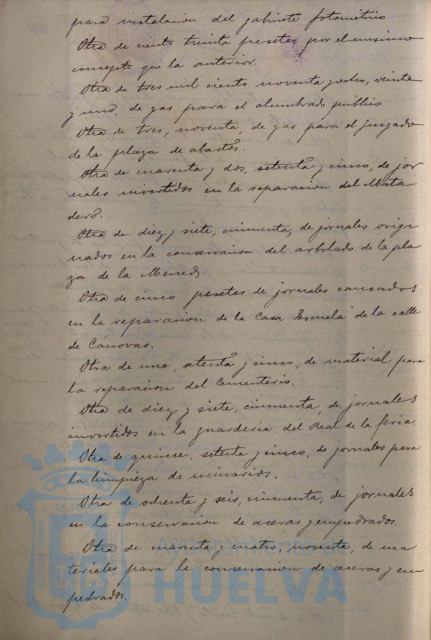 para instalacion del gabinete fotométrico
Otra de ciento treinta pesetas por el mismo
concepto que la anterior.
Otra de tres mil ciento noventa y ocho, veinte
y uno, de gas para el alumbrado publico
Otra de tres, noventa, de gas para el juzgado
de la plaza de abastos.
Otra de cuarenta y dos, setenta y cinco, de jor
nales invertidos en la reparacion del Mata
dero.
Otra de diez y siete, cincuenta, de jornales origi
nados en la conservacion del arbolado de la pla
za de la Merced.
Otra de cinco pesetas de jornales causados
en la reparacion de la Casa Escuela de la calle
de Cánovas.
Otra de una, setenta y cinco, de material para
la reparacion del Cementerio.
Otra de diez y siete, cincuenta, de jornales
invertidos en la guarderia del Real de la feria.
Otra de quince, setenta y cinco, de jornales para
la limpieza de urinarios.
Otra de ochenta y seis, cincuenta, de jornales
en la conservacion de aceras y empedrados.
Otra de cuarenta y cuatro, noventa, de ma
teriales para la conservacion de aceras y em
pedrados.
Ayuntamiento de
HUELVA